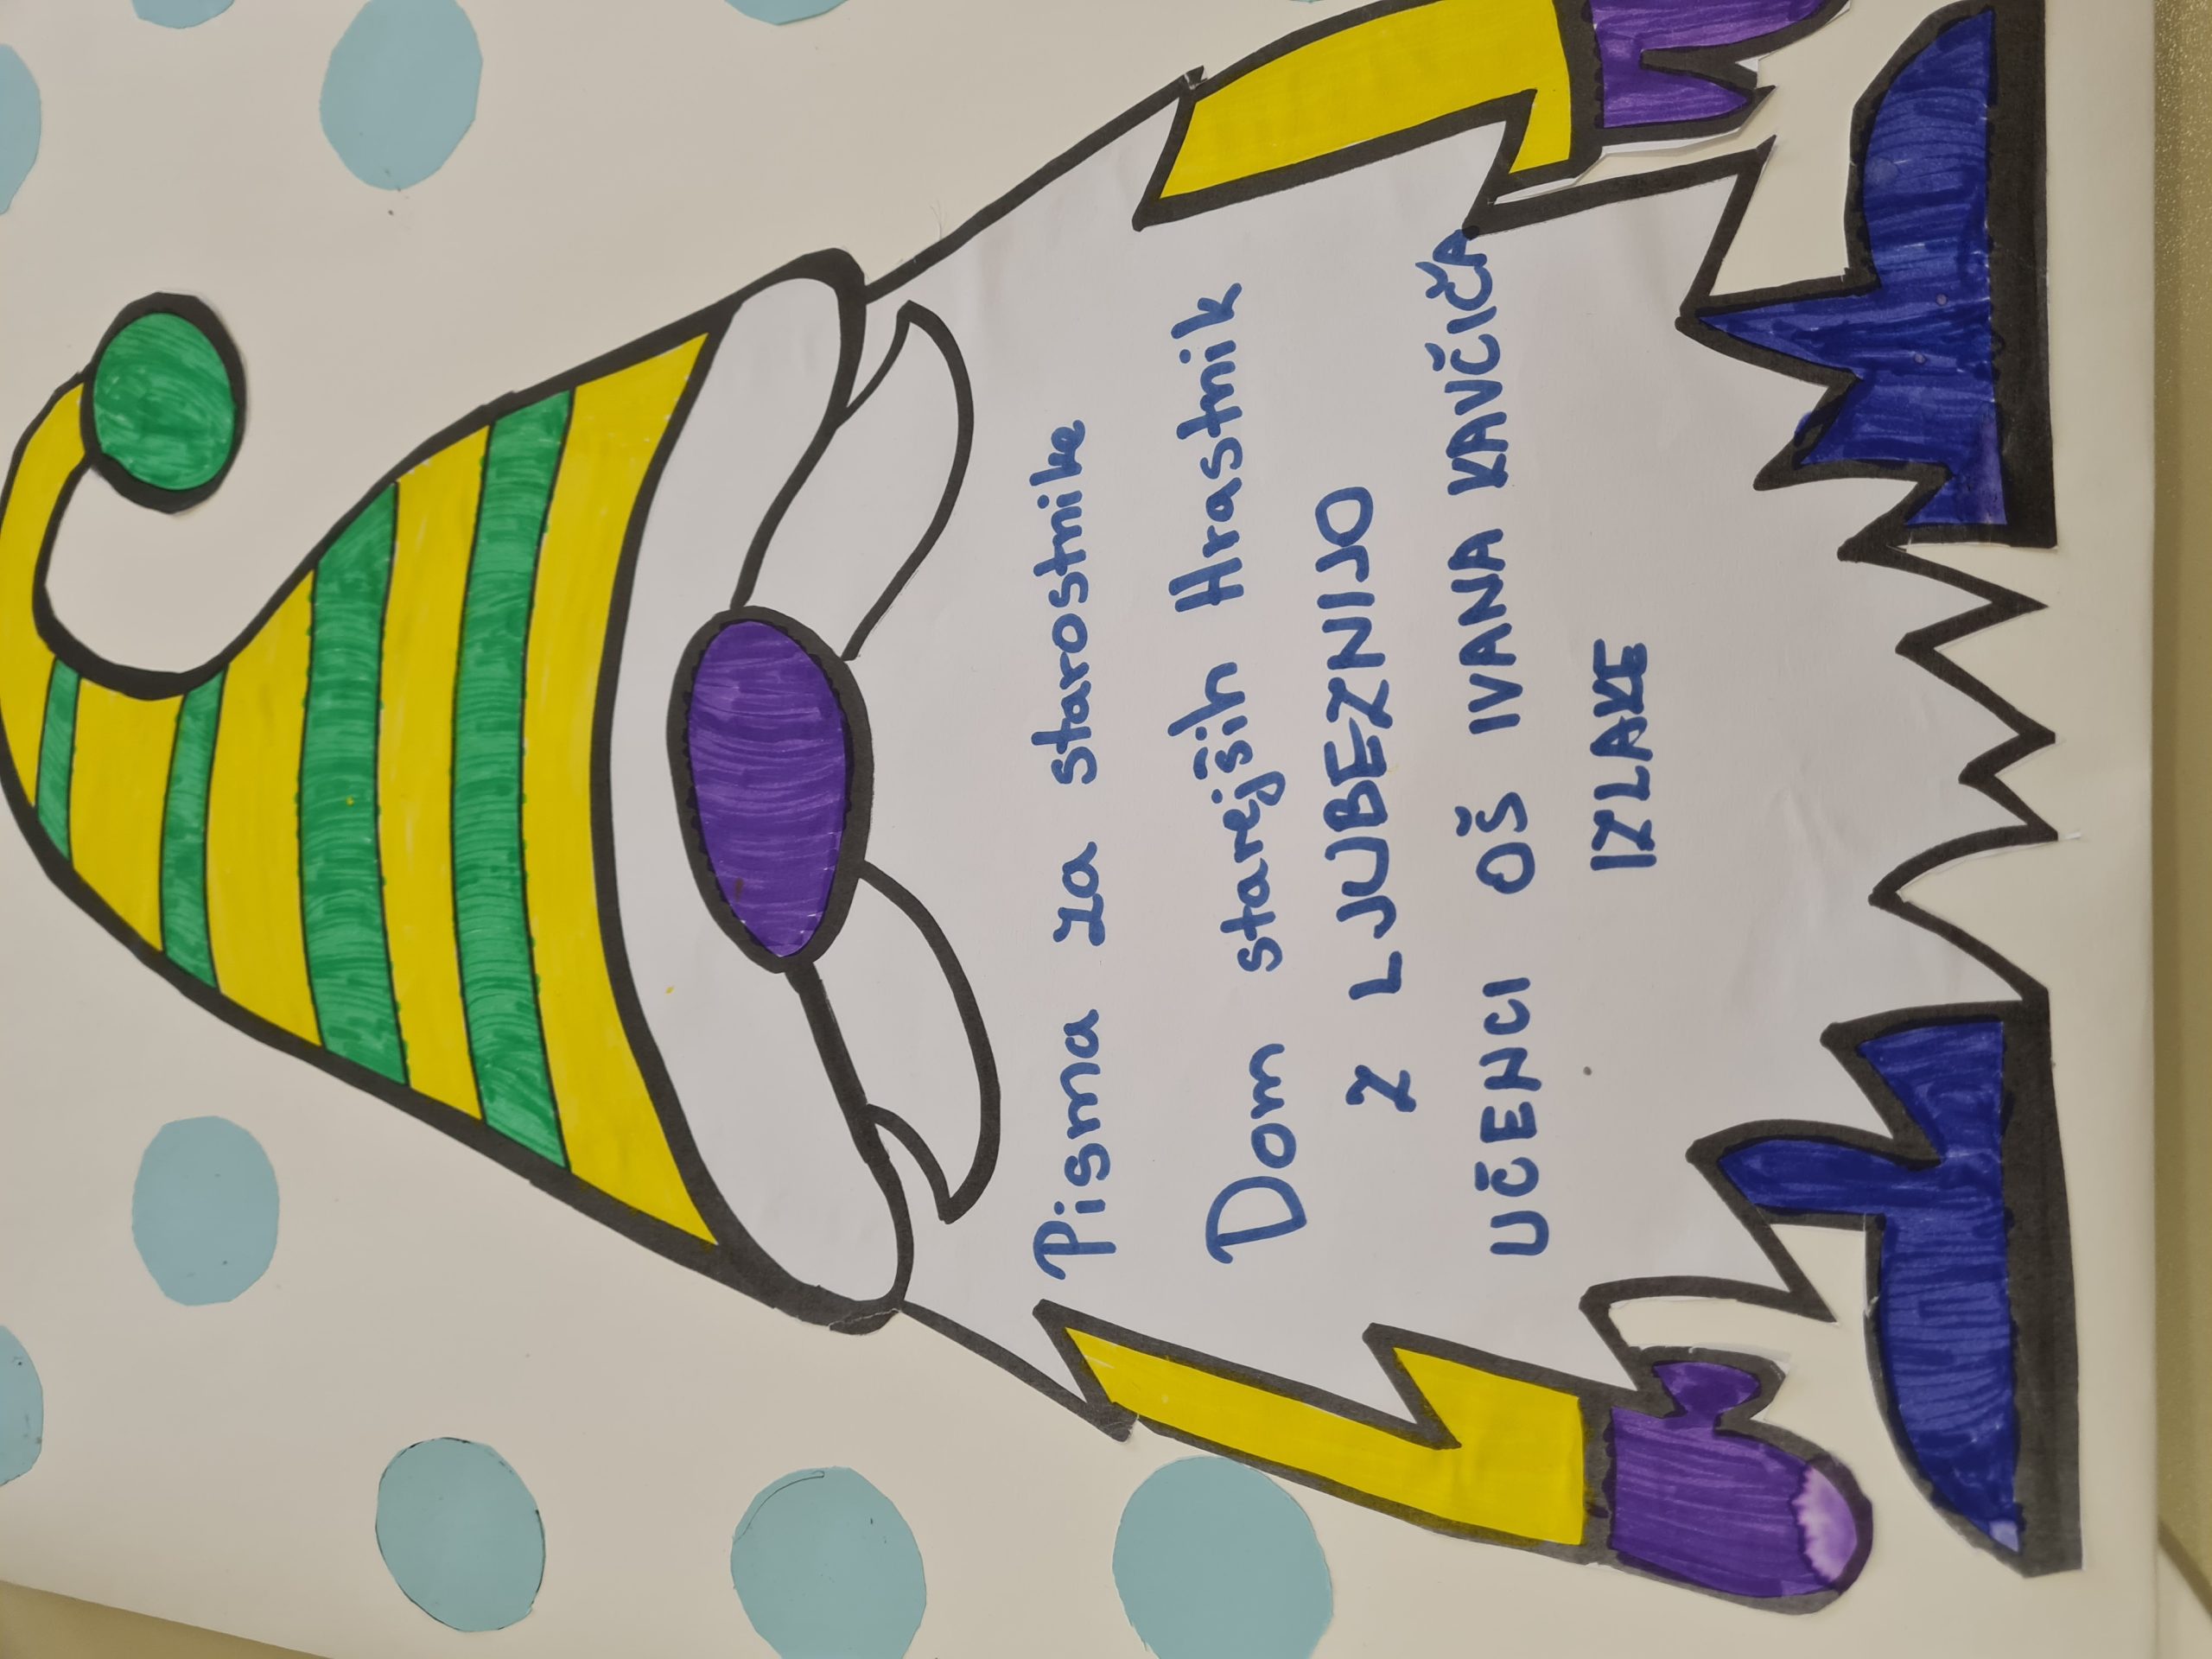 Pisma za starostnike
Dom starejših Hrastnik
Z LJUBEZNIJO
UČENCI OŠ IVANA KAVČIČA
IZLAKE